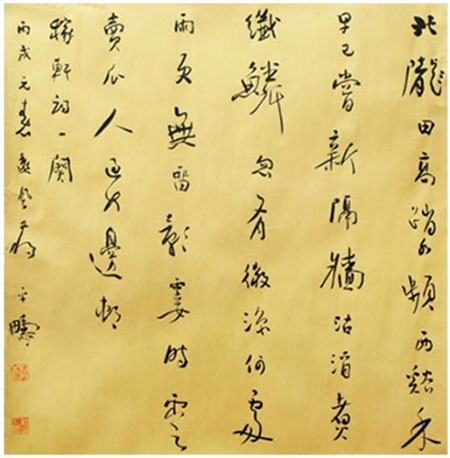 北隴田高踏水頻西谿禾
早已嘗新隔牆沽酒煮
纖鱗忽有微涼何處
雨更無留影霎時雲
賣瓜人過竹邊邨
稼軒詞一闋
丙戌元春